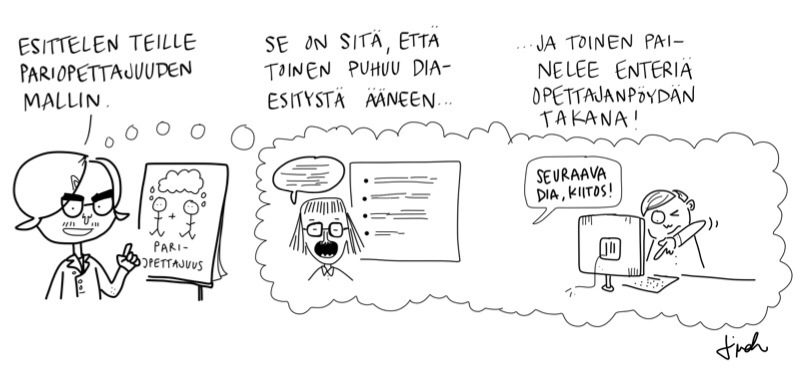 ESITTELEN TEILLE
PARIOPETTAJUUDEN
MALLIN.
SE ON SITÄ, ETTÄ
TOINEN PUHUU DIA-
ESITYSTÄ ÄÄNEEN...
...JA TOINEN PAI-
NELEE ENTERIÄ
OPETTAJANPÖYDÄN
TAKANA!
+
PARI-
OPETTAJUUS
SEURAAVA
DIA, KIITOS!